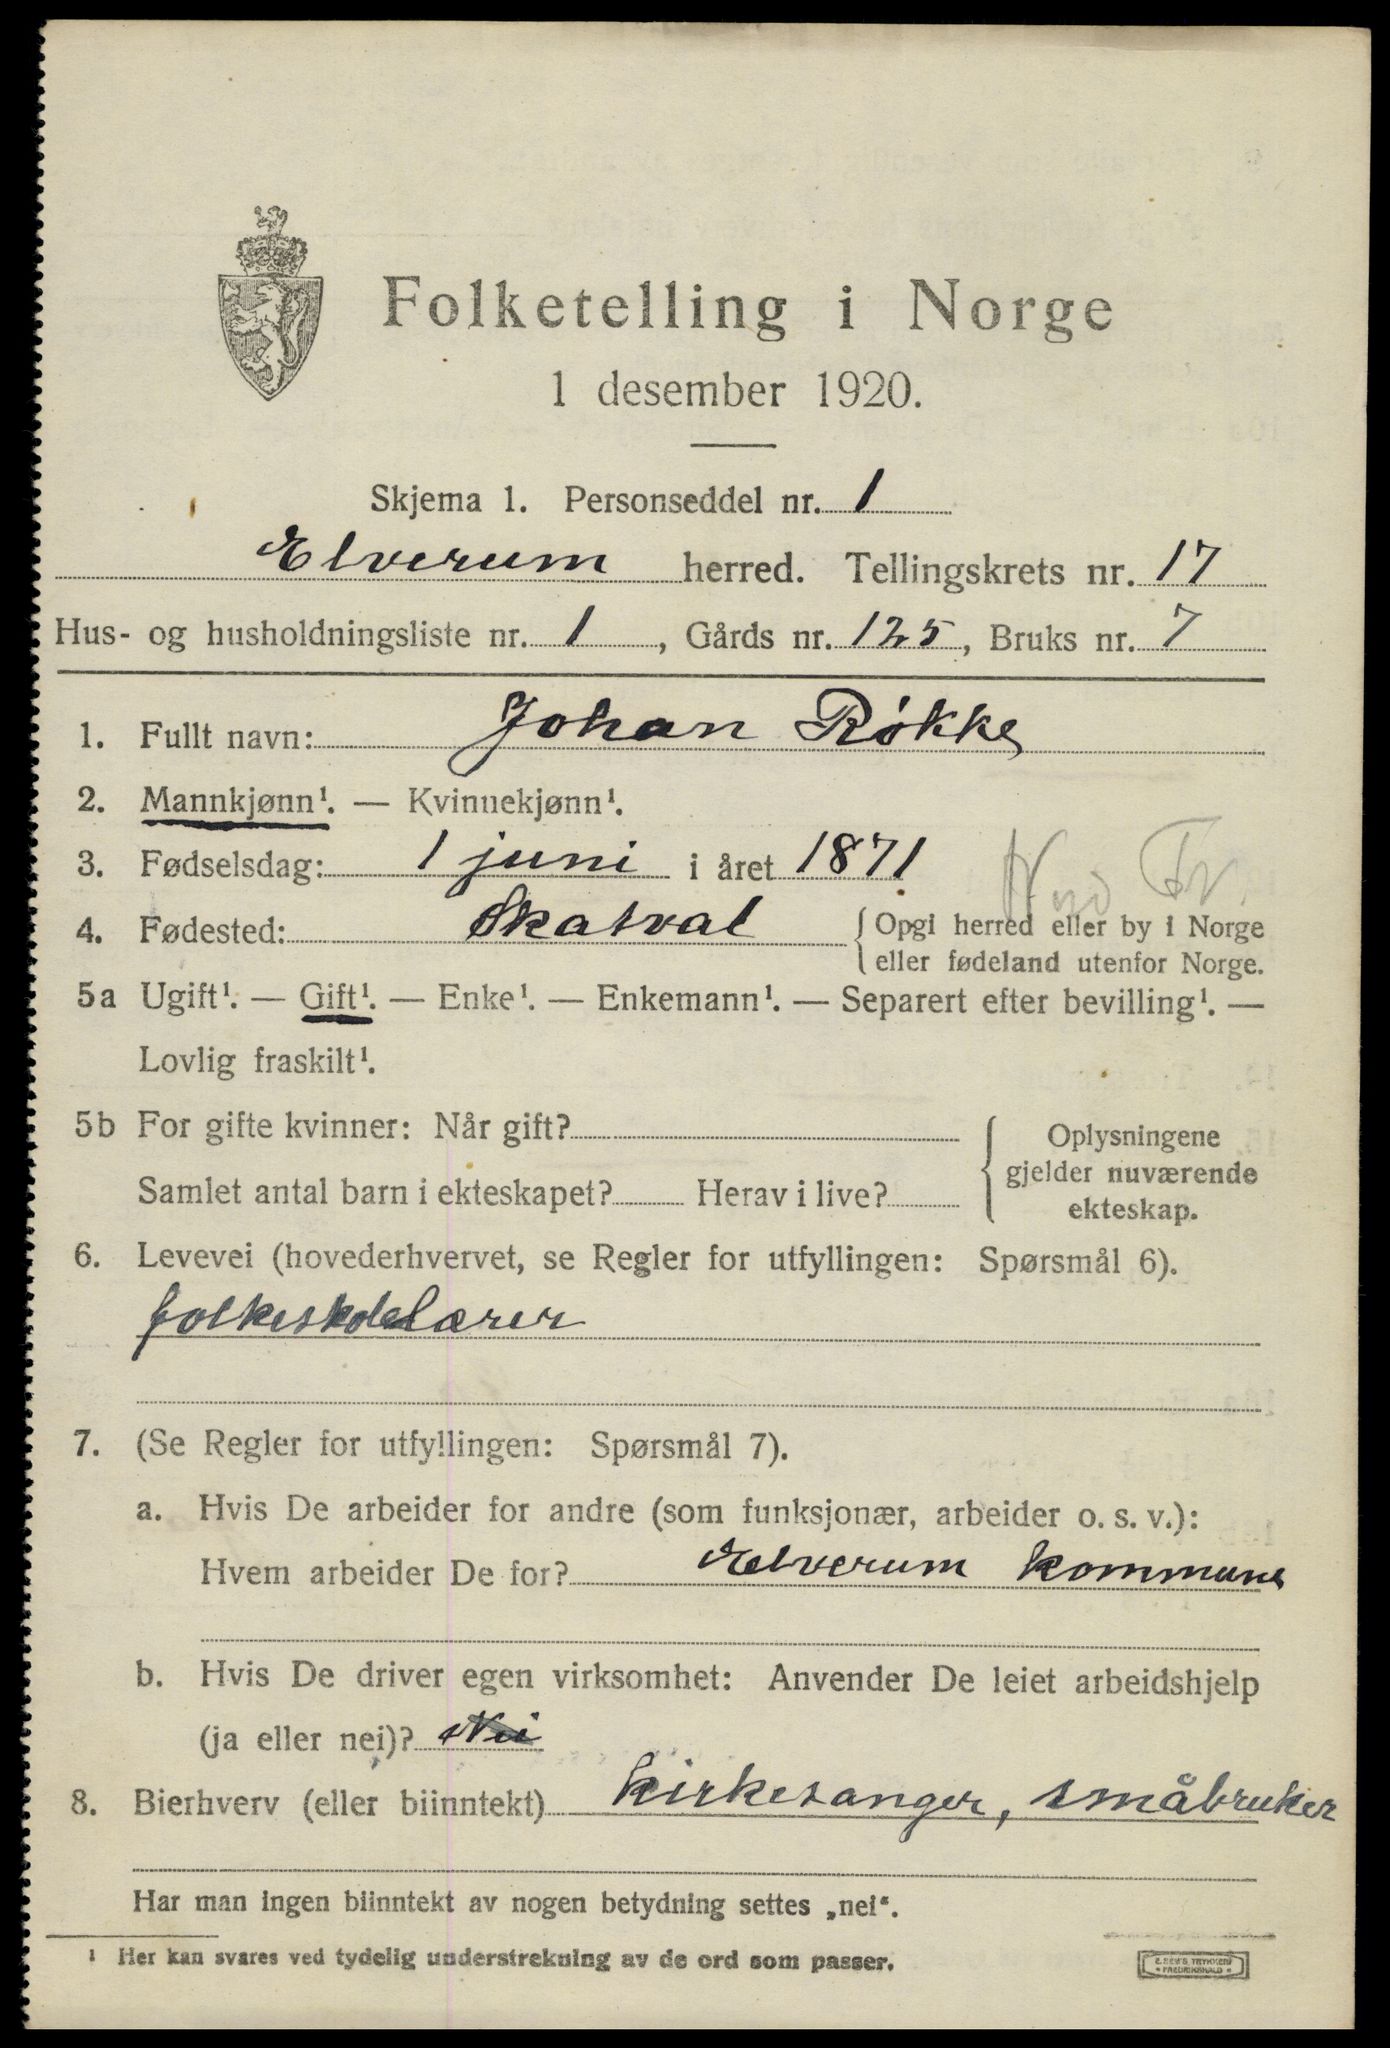 Folketelling i Norge
1 desember 1920.
Skjema 1. Personseddel nr. 1
Elverum herred. Tellingskrets nr. 17
Hus- og husholdningsliste nr. 1, Gårds nr. 125, Bruks nr. 7
1. Fullt navn: Johan Røkke
2. Mannkjønn¹. — Kvinnekjønn¹.
3. Fødselsdag: 1 juni i året 1871
4. Fødested: Skatval { Opgi herred eller by i Norge
eller fødeland utenfor Norge.
5a Ugift¹. — Gift¹. — Enke¹. — Enkemann¹. — Separert efter bevilling¹. —
Lovlig fraskilt¹.
5b For gifte kvinner: Når gift?
Samlet antal barn i ekteskapet? Herav i live?
{ Oplysningene
gjelder nuværende
ekteskap.
6. Levevei (hovederhvervet, se Regler for utfyllingen: Spørsmål 6).
folkeskolelærer
7. (Se Regler for utfyllingen: Spørsmål 7).
a. Hvis De arbeider for andre (som funksjonær, arbeider o. s. v.):
Hvem arbeider De for? Elverum kommune
b. Hvis De driver egen virksomhet: Anvender De leiet arbeidshjelp
(ja eller nei)? Nei
8. Bierhverv (eller biinntekt) kirkesanger, småbruker
Har man ingen biinntekt av nogen betydning settes „nei“.
¹ Her kan svares ved tydelig understrekning av de ord som passer.
E. SEM'S TRYKKERI
FREDRIKSHALD